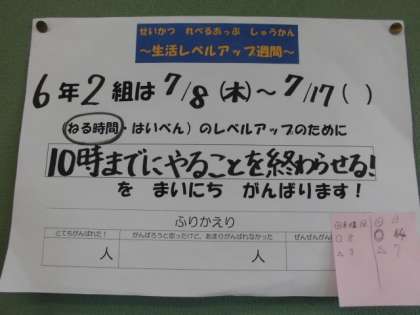 せいかつ れべるあっぷ しゅうかん
～生活レベルアップ週間～
6年2組は 7/8 (木)～ 7/17 ( )
(ねる時間・はいべん)のレベルアップのために
10時までにやることを終わらせる!
を まいにち がんばります!
ふりかえり
とてもがんばれた! がんばろうと思ったけど、あまりがんばれなかった ぜんぜんがん
人 人